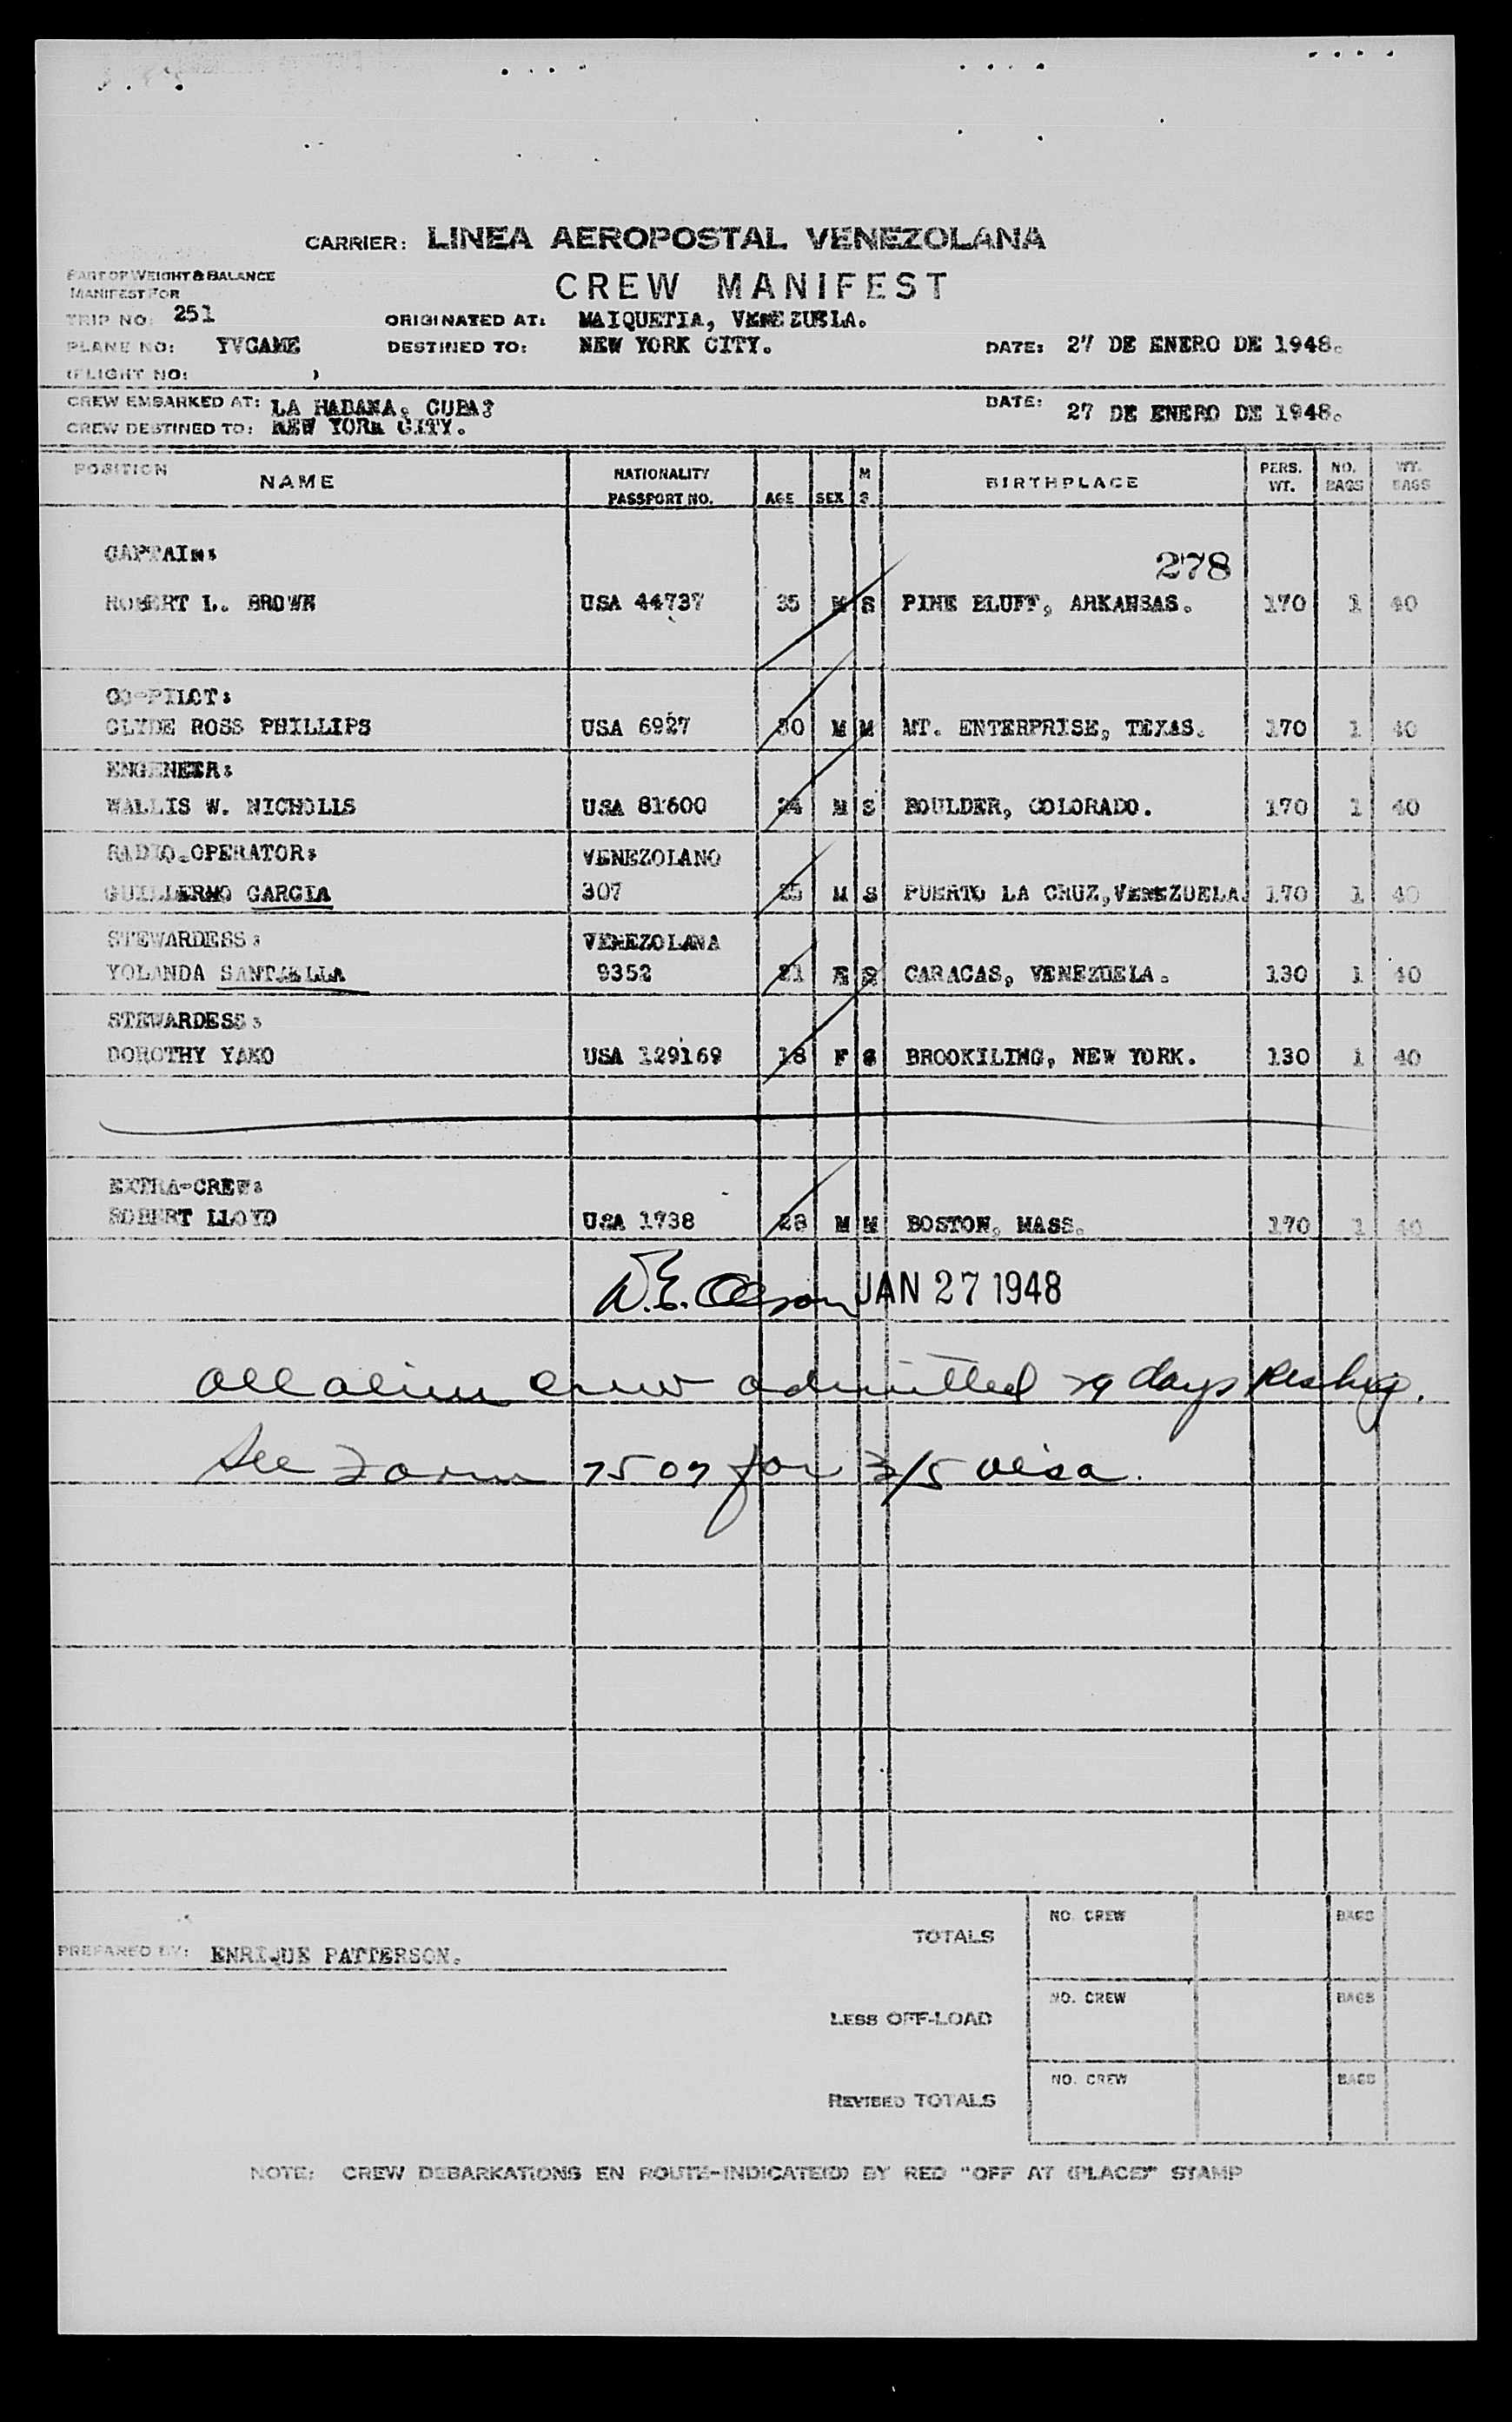 CARRIER: LINEA AEROPOSTAL VENEZOLANA
PART OF WEIGHT & BALANCE
MANIFEST FOR
CREW MANIFEST
TRIP NO: 251 ORIGINATED AT: MAIQUETIA, VENEZUELA.
PLANE NO: YVCAME DESTINED TO: NEW YORK CITY. DATE: 27 DE ENERO DE 1948.
(FLIGHT NO: )
CREW EMBARKED AT: LA HABANA, CUBA? DATE: 27 DE ENERO DE 1948.
CREW DESTINED TO: NEW YORK CITY.
POSITION NAME NATIONALITY PASSPORT NO. AGE SEX M S BIRTHPLACE PERS. WT. NO. BAGS WT. BAGS
CAPTAIN: 278
ROBERT L. BROWN USA 44737 35 M S PINE BLUFF, ARKANSAS. 170 1 40
CO-PILOT:
CLYDE ROSS PHILLIPS USA 6927 30 M M MT. ENTERPRISE, TEXAS. 170 1 40
ENGENEIR:
WALLIS W. NICHOLLS USA 81600 24 M S BOULDER, COLORADO. 170 1 40
RADIO.OPERATOR: VENEZOLANO
GUILLERMO GARCIA 307 25 M S PUERTO LA CRUZ,VENEZUELA. 170 1 40
STEWARDESS: VENEZOLANA
YOLANDA SANTAELLA 9352 21 F S CARACAS, VENEZUELA. 130 1 40
STEWARDESS:
DOROTHY YAKO USA 129169 18 F S BROOKILING, NEW YORK. 130 1 40
EXTRA-CREW:
ROBERT LLOYD USA 1738 28 M M BOSTON, MASS. 170 1 40
W.E. Olson JAN 27 1948
all alien crew admitted 29 days
See Form 7507 for 3/5 visa.
PREPARED BY: ENRIQUE PATTERSON.
TOTALS NO. CREW BAGS
LESS OFF-LOAD NO. CREW BAGS
REVISED TOTALS NO. CREW BAGS
NOTE: CREW DEBARKATIONS EN ROUTE-INDICATE(D) BY RED "OFF AT (PLACE)" STAMP